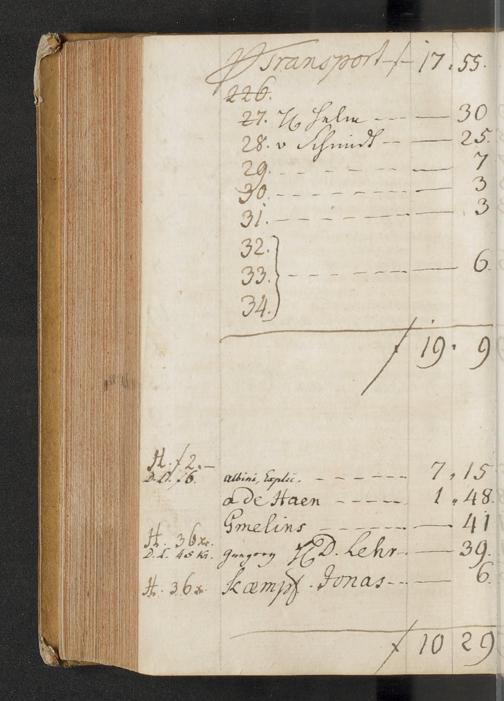 Transport f 17. 55.
226.
27. H Helm — 30
28. v Schmidt — 25.
29. — 7
30. — 3
31. — 3
32.
33. — 6.
34.
f 19. 9
H. f 2. —
D.D. f 6. albini, Explic. — 7. 15
a de Haen — 1. 48
Gmelins — 41
H. 36 x.
D. L. 45 xr. H D. Lehr — 39.
H. 36 x. Kæmpf. Jonas — 6.
f 10 29